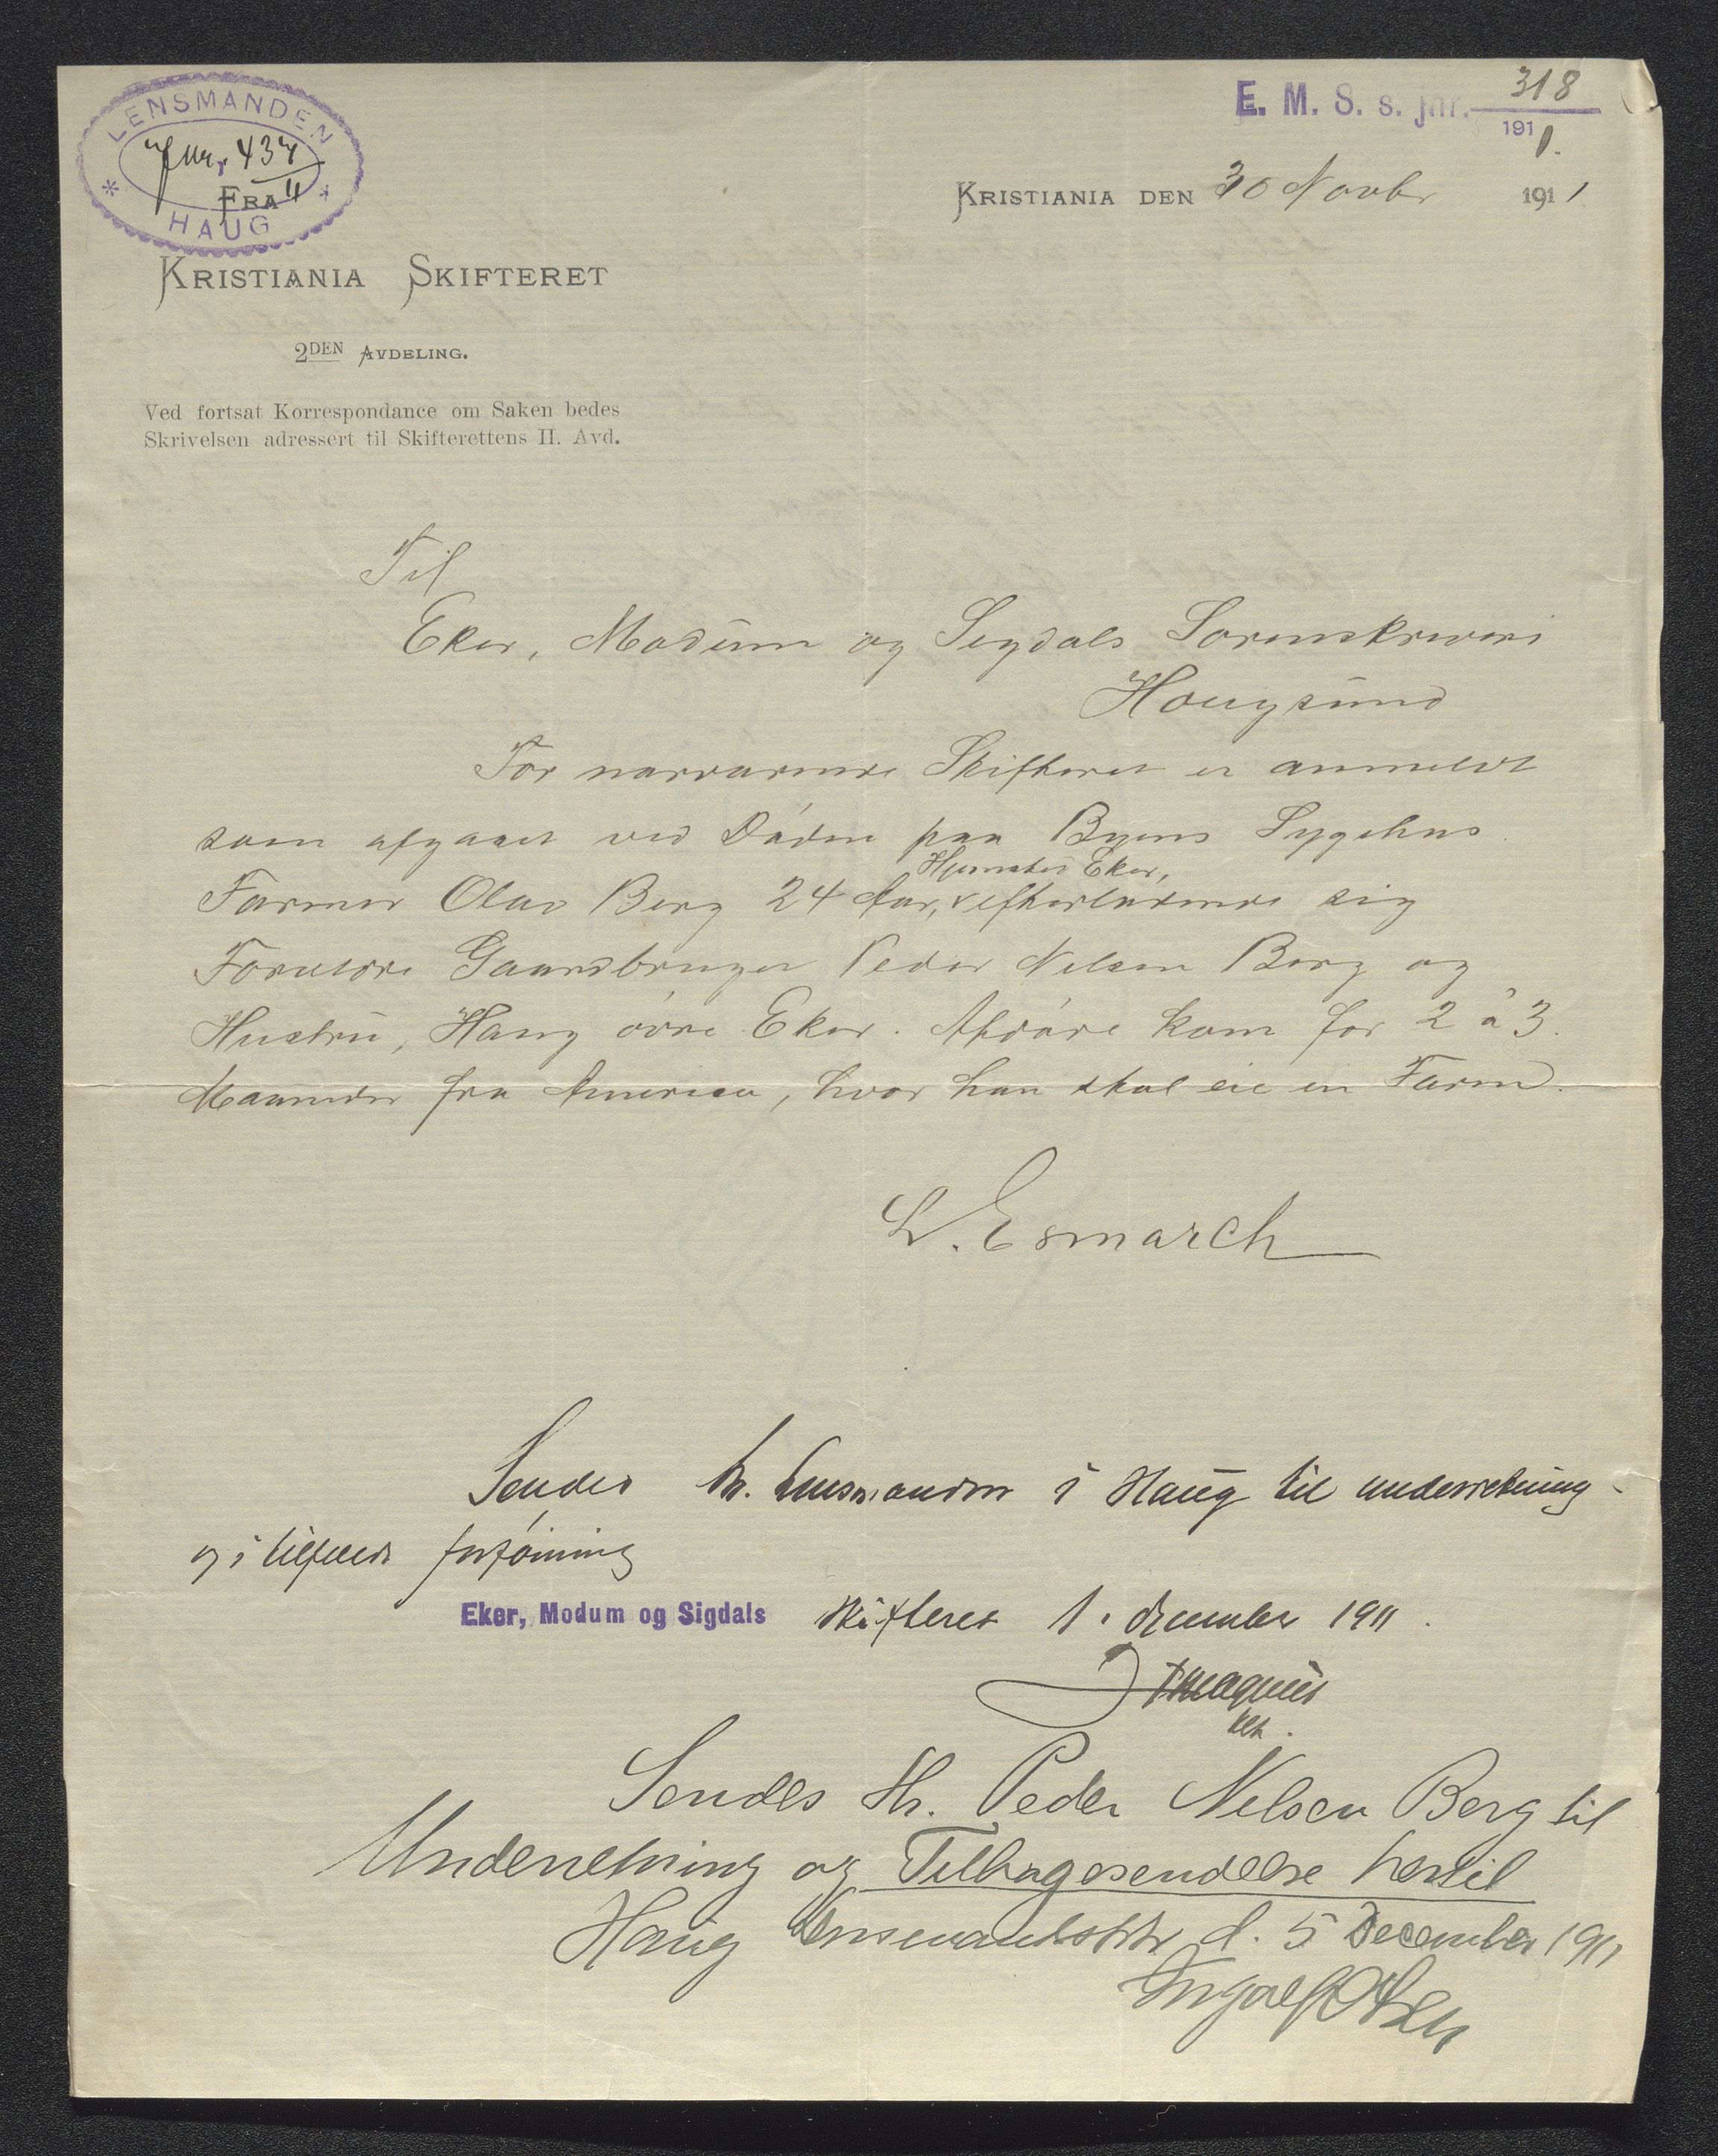 LENSMANDEN
Jnr. 437
HAUG
E. M. S. s. jnr. 318
1911.
FRA
KRISTIANIA DEN 30 Novbr 1911
KRISTIANIA SKIFTERET
2DEN AVDELING.
Ved fortsat Korrespondance om Saken bedes
Skrivelsen adressert til Skifterettens II. Avd.
Til
Eker, Modum og Sigdals Sorenskriveri
Hougsund
For nærværende Skifteret er anmeldt
som afgaaet ved Døden paa Byens Sygehus
Hjemsted Eker,
Farmer Olav Berg 24 Aar, v efterladende sig
Forældre Gaardbruger Peder Nilsen Berg og
Hustru, Haug øvre Eker. Afdøde kom for 2 à 3
Maaneder fra Amerika, hvor han skal eie en Farm.
L. Esmarch
Sendes hr. lensmanden i Haug til underretning
og i tilfælde forføining
Eker, Modum og Sigdals skifteret 1. december 1911.
Sendes Hr. Peder Nilsen Berg til
Underretning og Tilbagesendelse hertil
Haug Lensmandsbst. d. 5 December 1911